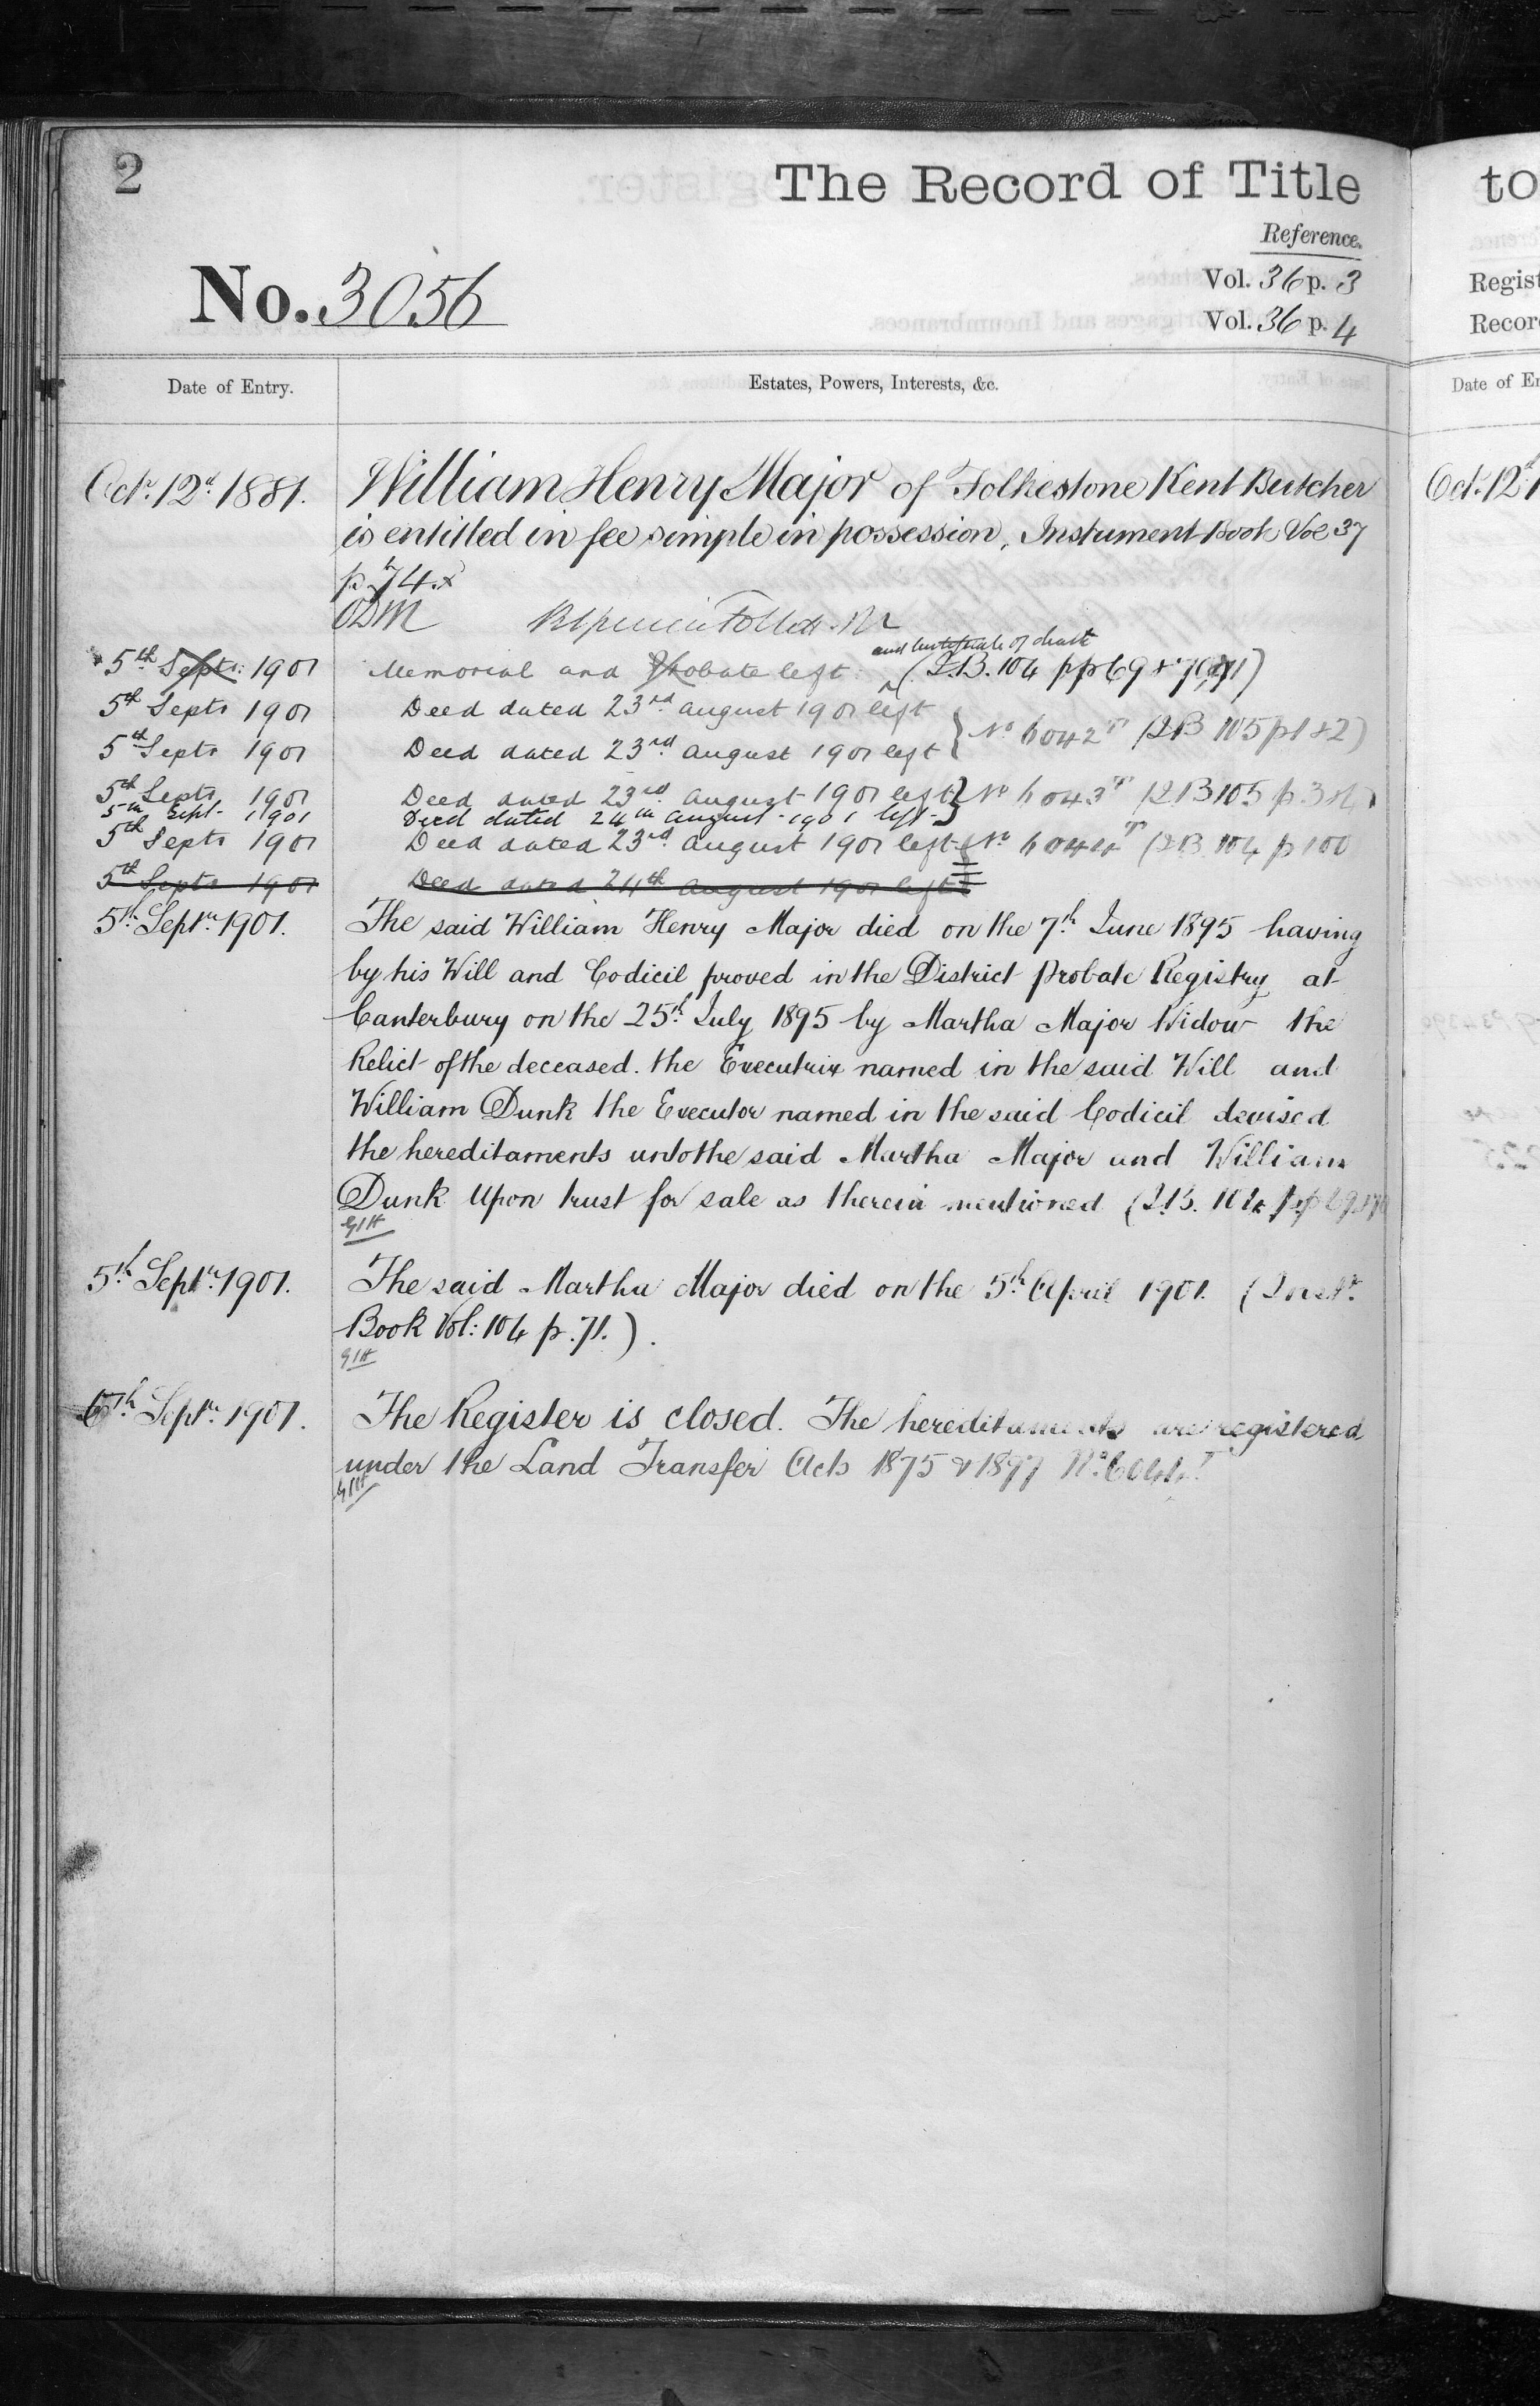 2
The Record of Title
Reference.
No. 3056
Vol. 36 p. 3
Vol. 36 p. 4
Date of Entry.
Estates, Powers, Interests, &c.
Octr. 12th 1881.
William Henry Major of Folkestone Kent Butcher
is entitled in fee simple in possession, Instrument Book Vol 37
p. 74.
and Certificate of death
5th Septr: 1901 Memorial and Probate left (I.B. 104 pp 69 & 70, 71)
5th Septr 1901 Deed dated 23rd August 1901 left
5th Septr 1901 Deed dated 23rd August 1901 left } No 6042T (I B 105 p 1 & 2)
5th Septr 1901 Deed dated 23rd August 1901 left } No 6043T (I B 105 p. 3 & 4)
5th Sept. 1901 Deed dated 24th August 1901 left
5th Septr 1901 Deed dated 23rd August 1901 left No 6044T (I B. 104 p 100
5th Septr 1901 Deed dated 24th August 1901 left
5th Septr. 1901. The said William Henry Major died on the 7th June 1895 having
by his Will and Codicil proved in the District Probate Registry at
Canterbury on the 25th July 1895 by Martha Major Widow the
Relict of the deceased. the Executrix named in the said Will and
William Dunk the Executor named in the said Codicil devised
the hereditaments unto the said Martha Major and William
Dunk Upon trust for sale as therein mentioned (I.B. 104 pp 69 & 70
5th Septr. 1901. The said Martha Major died on the 5th April 1901. (Instt.
Book Vol: 104 p. 71.).
6th Septr. 1901. The Register is closed. The hereditaments are registered
under the Land Transfer Acts 1875 & 1897 No. 6044T
to
Regist
Recor
Date of En
Oct. 12th 1